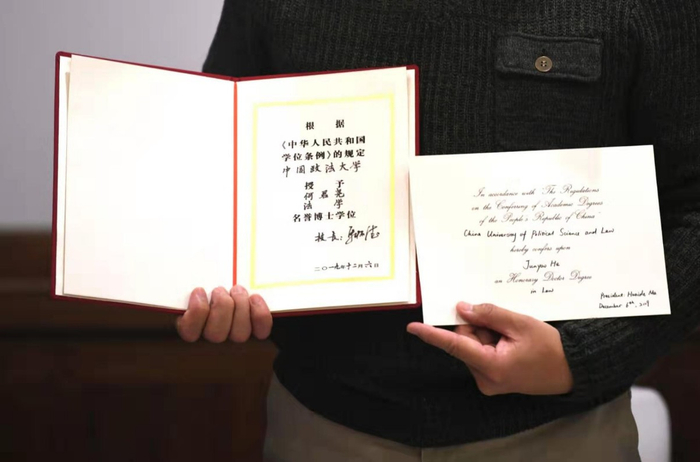 根 据
《中华人民共和国
学位条例》的规定
中国政法大学
授 予
何君尧
法 学
名誉博士学位
校长：
二〇一九年十二月六日
In accordance with 'The Regulations
on the Conferring of Academic Degrees
of the People's Republic of China'
China University of Political Science and Law
hereby confers upon
Junyao He
an Honorary Doctor Degree
in Law
President Huaide Ma
December 6th, 2019